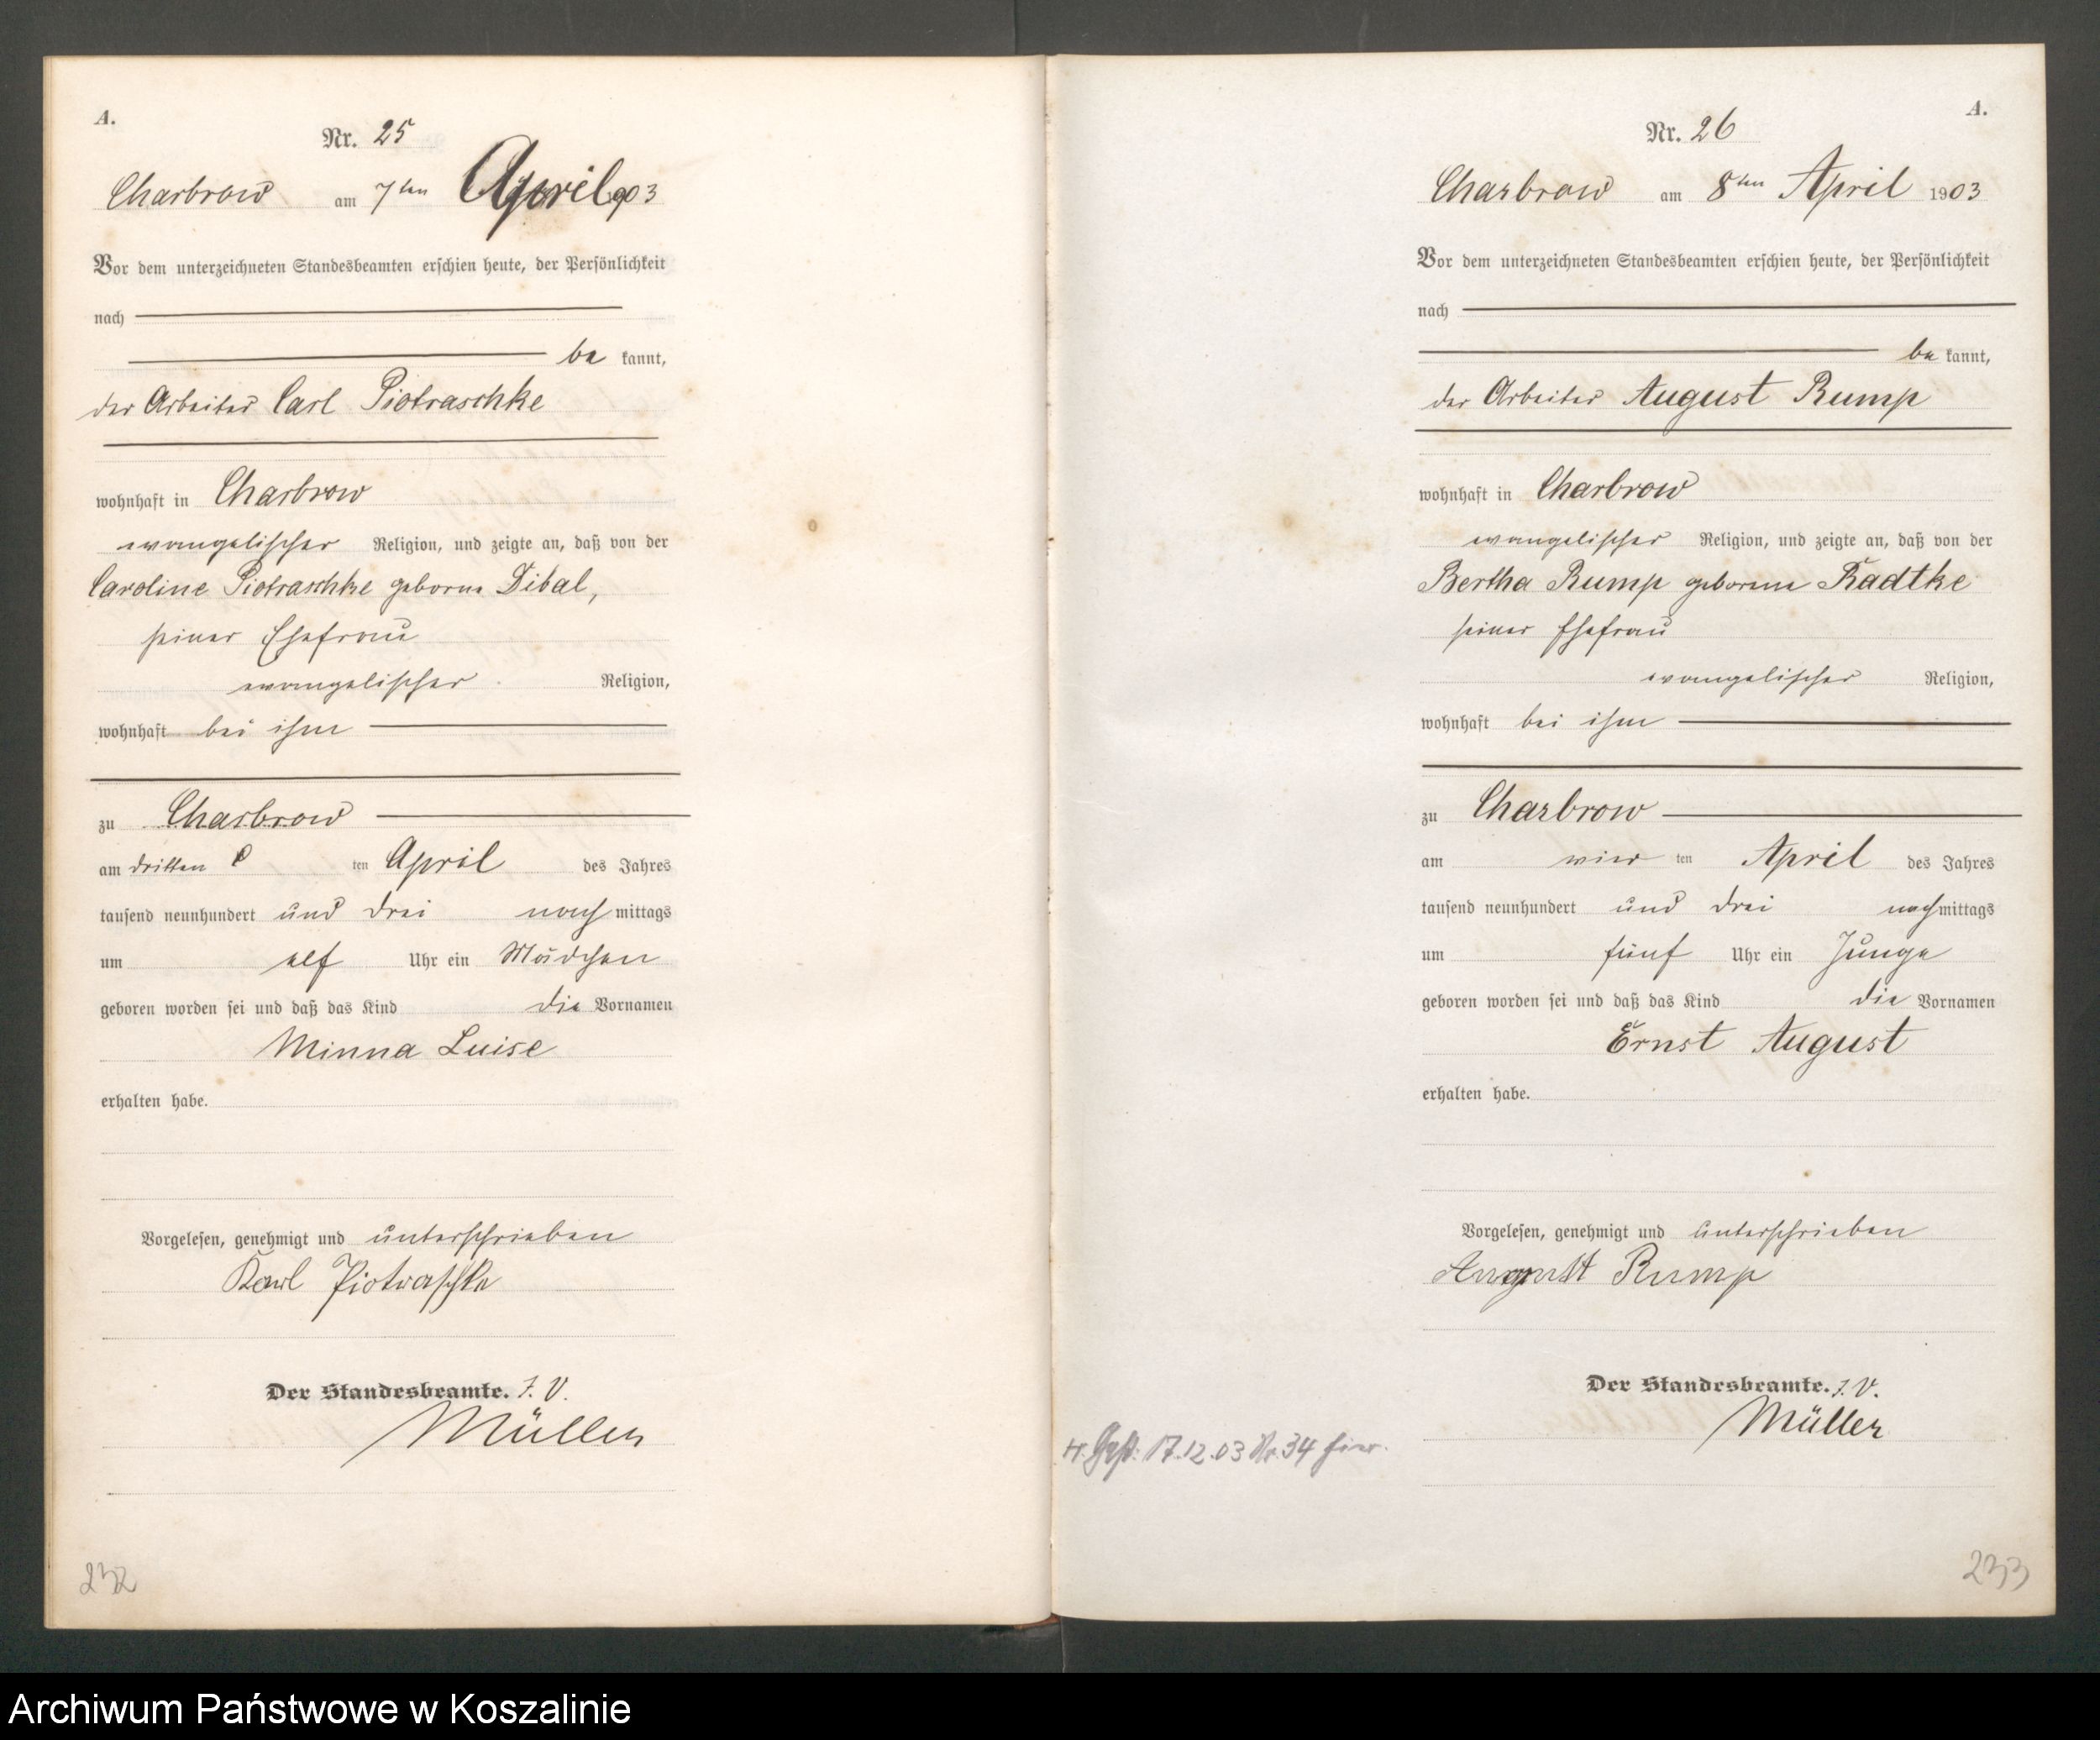 A.
Nr. 25
Charbrow am 7ten April 1903
Vor dem unterzeichneten Standesbeamten erschien heute, der Persönlichkeit
nach
be kannt,
der Arbeiter Carl Piotraschke
wohnhaft in Charbrow
evangelischer Religion, und zeigte an, daß von der
Caroline Piotraschke geborne Dibal,
seiner Ehefrau
evangelischer Religion,
wohnhaft bei ihm
zu Charbrow
am dritten ten April des Jahres
tausend neunhundert und drei nach mittags
um elf Uhr ein Mädchen
geboren worden sei und daß das Kind die Vornamen
Minna Luise
erhalten habe.
Vorgelesen, genehmigt und unterschrieben
Karl Piotraschke
Der Standesbeamte. I. V.
Müller
232
A.
Nr. 26
Charbrow am 8ten April 1903
Vor dem unterzeichneten Standesbeamten erschien heute, der Persönlichkeit
nach
be kannt,
der Arbeiter August Rump
wohnhaft in Charbrow
evangelischer Religion, und zeigte an, daß von der
Bertha Rump geborene Radtke
seiner Ehefrau
evangelischer Religion,
wohnhaft bei ihm
zu Charbrow
am vier ten April des Jahres
tausend neunhundert und drei nach mittags
um fünf Uhr ein Junge
geboren worden sei und daß das Kind die Vornamen
Ernst August
erhalten habe.
Vorgelesen, genehmigt und unterschrieben
August Rump
Der Standesbeamte. I. V.
Müller
17.12.03 Nr. 34 hier.
233
Archiwum Państwowe w Koszalinie